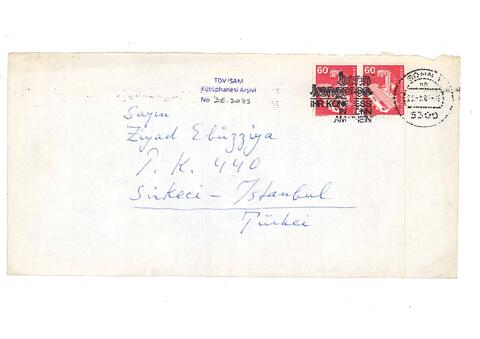 TDV İSAM
Kütüphanesi Arşivi
No 2E.2075
60
60
BONN 1
5300
IHR KONGRESS
IN BONN
AM RHEIN
Sayın
Ziyad Ebüzziya
P. K. 440
Sirkeci - Istanbul
Türkei